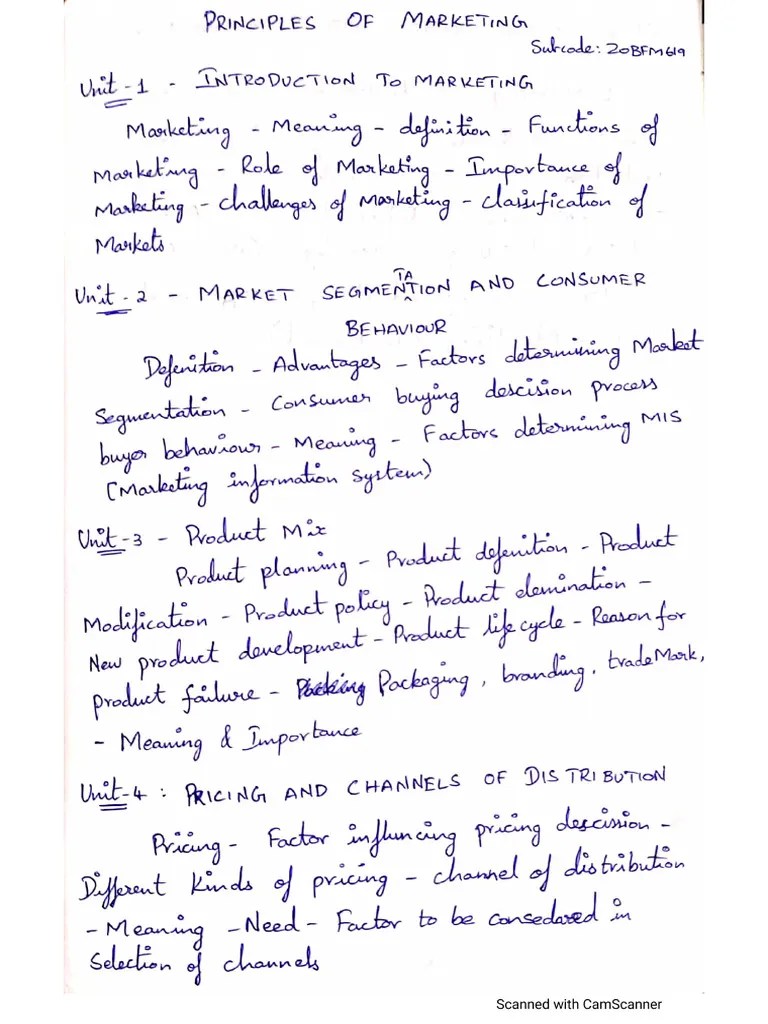 PRINCIPLES OF MARKETING
Subcode: 20BFM619
Unit-1 - INTRODUCTION TO MARKETING
Marketing - Meaning - definition - Functions of
Marketing - Role of Marketing - Importance of
Marketing - challenges of Marketing - classification of
Markets
Unit-2 - MARKET SEGMENTATION AND CONSUMER
BEHAVIOUR
Defenition - Advantages - Factors determining Market
Segmentation - Consumer buying descision process
buyer behaviour - Meaning - Factors determining MIS
(Marketing information system)
Unit-3 - Product Mix
Product planning - Product defenition - Product
Modification - Product policy - Product elemination -
New product development - Product life cycle - Reason for
product failure - Packaging, branding, tradeMark,
- Meaning & Importance
Unit-4 : PRICING AND CHANNELS OF DISTRIBUTION
Pricing - Factor influncing pricing descission -
Different Kinds of pricing - channel of distribution
- Meaning - Need - Factor to be consedared in
Selection of channels
Scanned with CamScanner